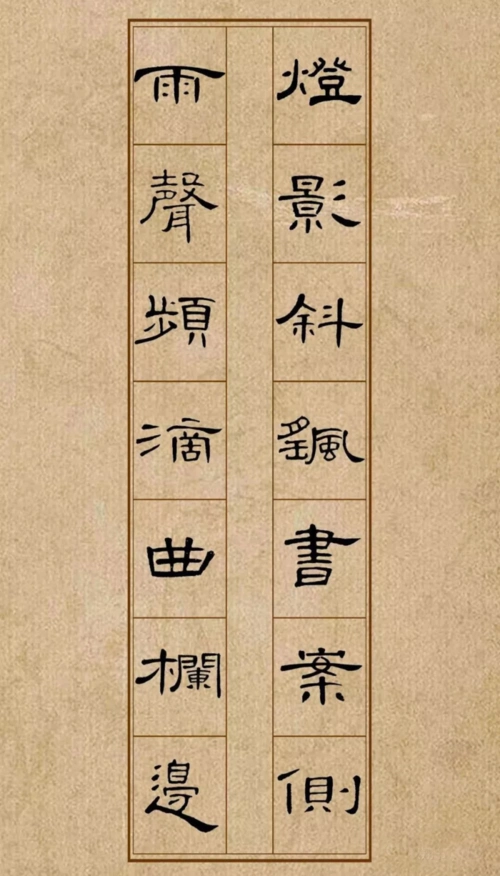 燈影斜颻書案側
雨聲頻滴曲欄邊